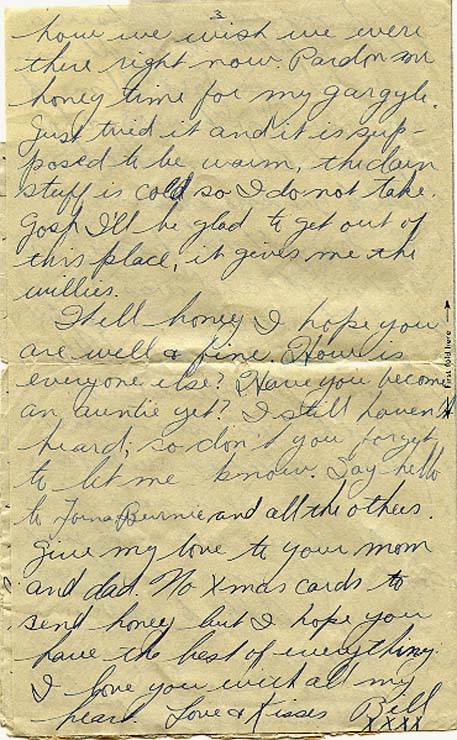 3
how we wish we were
there right now. Pardon me
honey time for my gargyle.
Just tried it and it is sup-
posed to be warm, the darn
stuff is cold so I do not take.
Gosh I'll be glad to get out of
this place, it gives me the
willies.
Well honey I hope you
are well & fine. How is
everyone else? Have you become
an auntie yet? I still haven't
heard, so don't you forget
to let me know. Say hello
to Bernie and all the others.
Give my love to your mom
and dad. No Xmas cards to
send honey but I hope you
have the best of everything.
I love you with all my
heart. Love & Kisses Bill
XXXX
First fold here